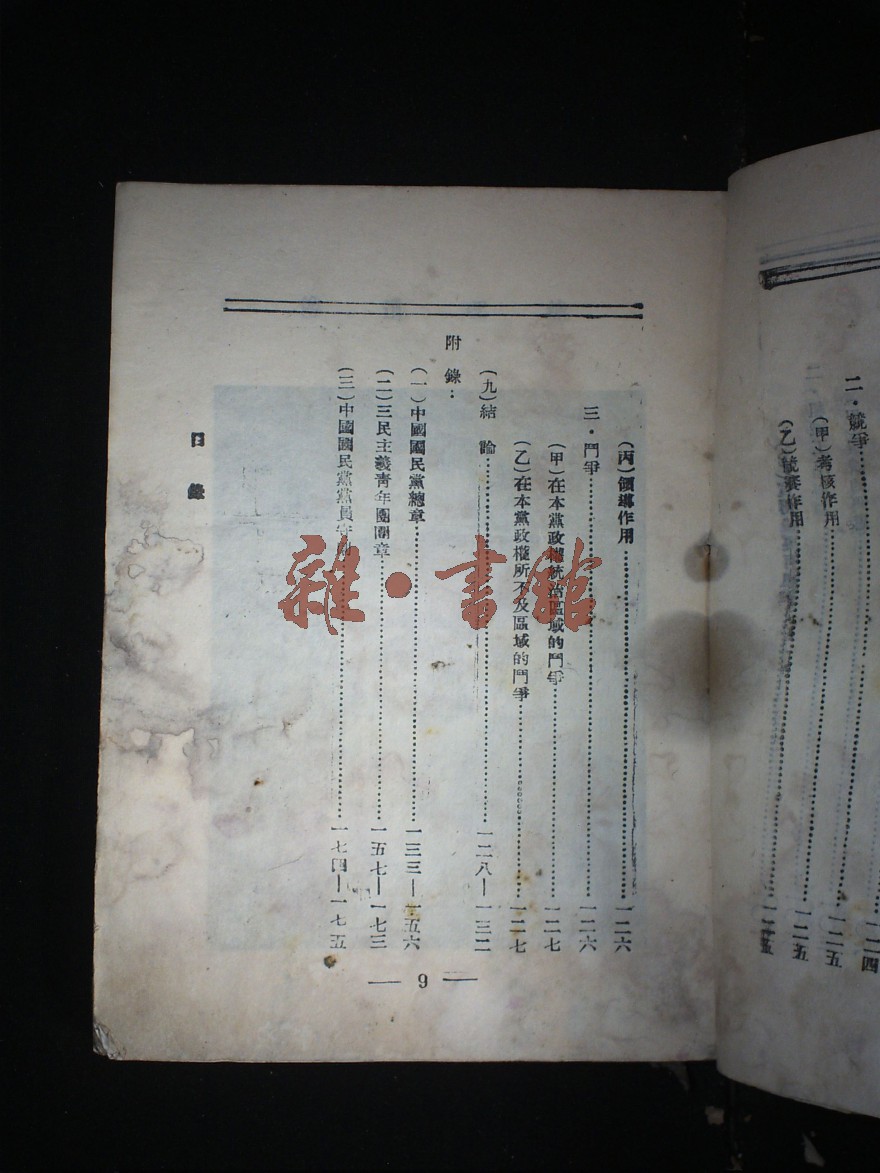 二・競爭 一二四
(甲)考核作用 一二五
(乙)競賽作用 一二五
(丙)領導作用 一二六
三・鬥爭 一二六
(甲)在本黨政權統治區域的鬥爭 一二七
(乙)在本黨政權所不及區域的鬥爭 一二七
(九)結論 一二八—一三二
附錄：
(一)中國國民黨總章 一三三—一五六
(二)三民主義青年團團章 一五七—一七三
(三)中國國民黨黨員守則 一七四—一七五
目錄
— 9 —
雜・書館